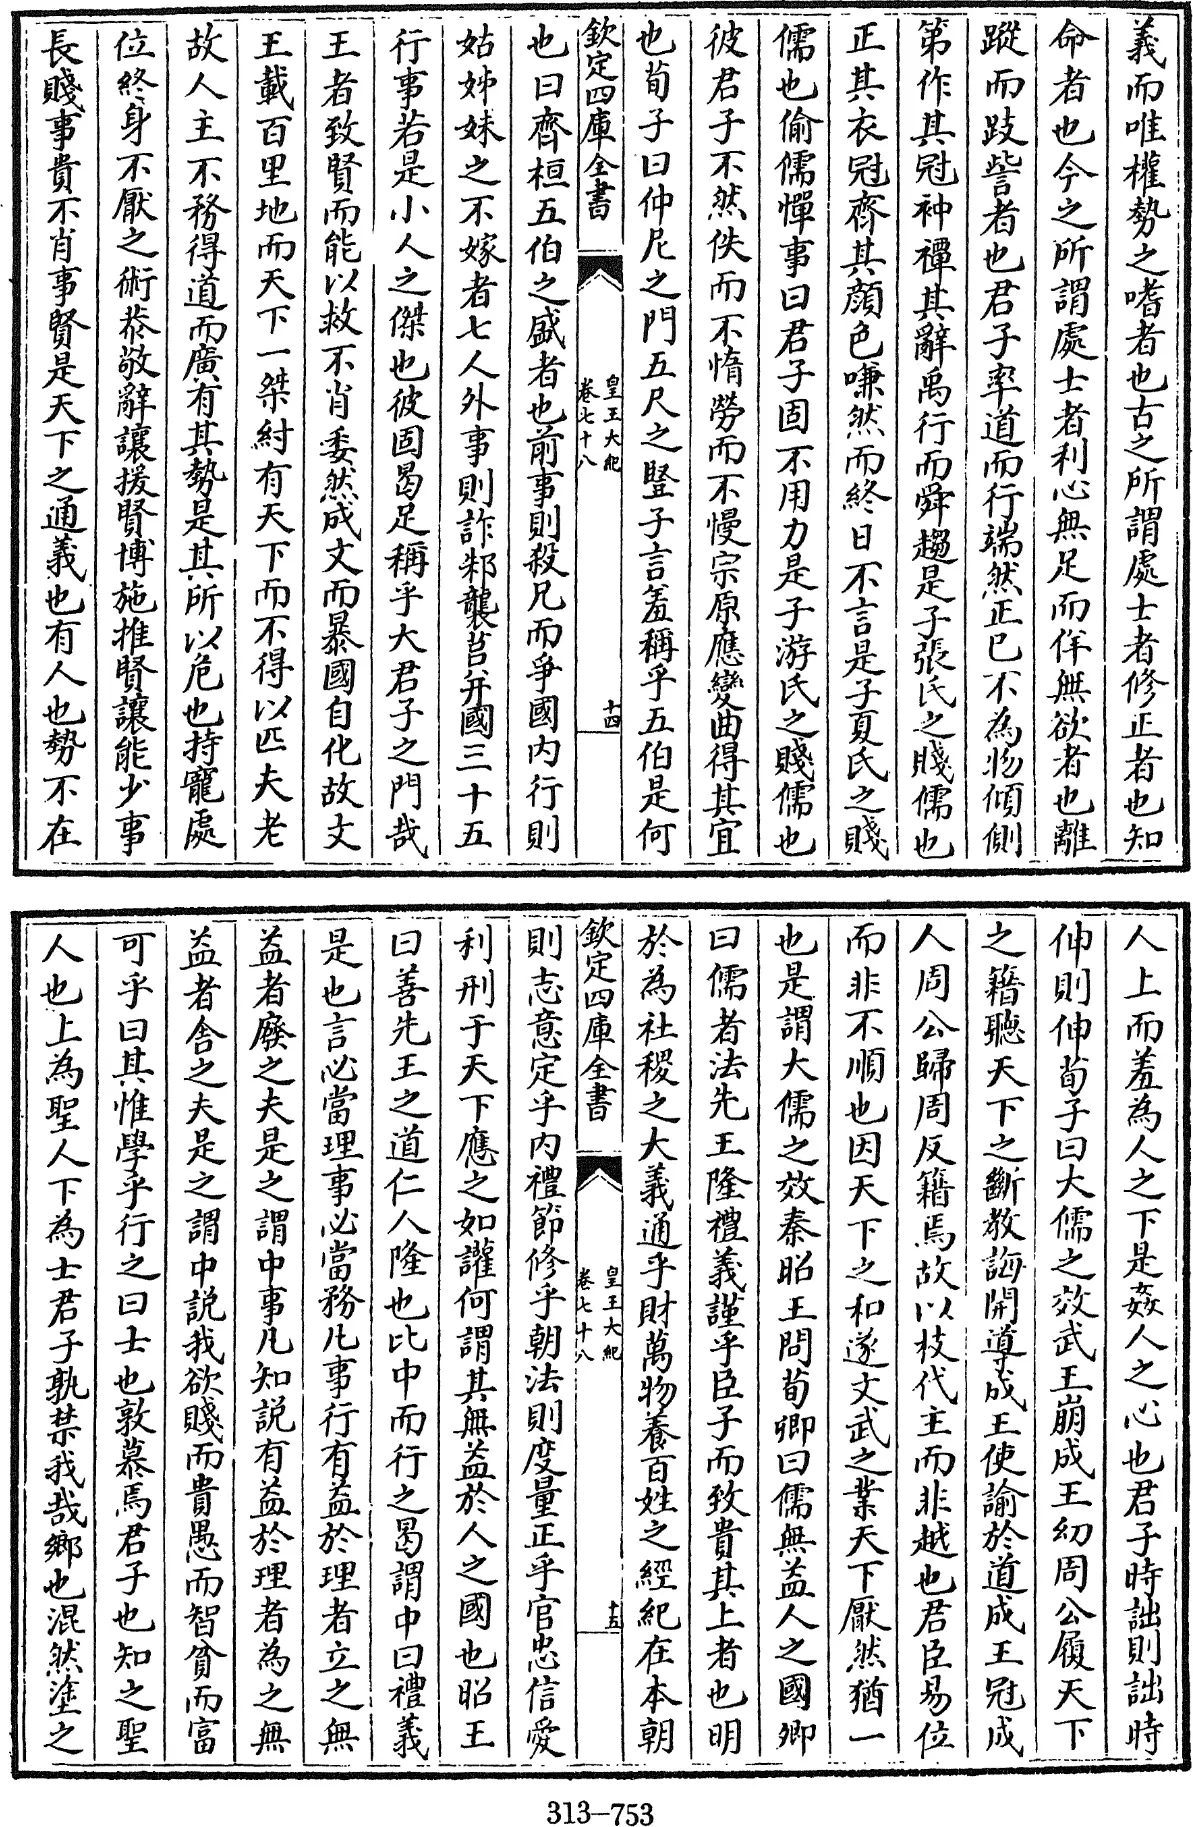 義而唯權勢之嗜者也古之所謂處士者修正者也知
命者也今之所謂處士者利心無足而佯無欲者也離
蹤而跂訾者也君子率道而行端然正已不為物傾側
第作其冠神禫其辭禹行而舜趨是子張氏之賤儒也
正其衣冠齊其顔色嗛然而終日不言是子夏氏之賤
儒也偷儒憚事曰君子固不用力是子游氏之賤儒也
彼君子不然佚而不惰勞而不慢宗原應變曲得其宜
也荀子曰仲尼之門五尺之豎子言羞稱乎五伯是何
欽定四庫全書
皇王大紀
卷七十八
十四
也曰齊桓五伯之盛者也前事則殺兄而爭國内行則
姑姊妹之不嫁者七人外事則詐邾襲莒并國三十五
行事若是小人之傑也彼固曷足稱乎大君子之門哉
王者致賢而能以救不肖委然成文而暴國自化故文
王載百里地而天下一桀紂有天下而不得以匹夫老
故人主不務得道而廣有其勢是其所以危也持寵處
位終身不厭之術恭敬辭讓援賢博施推賢讓能少事
長賤事貴不肖事賢是天下之通義也有人也勢不在
人上而羞為人之下是姦人之心也君子時詘則詘時
伸則伸荀子曰大儒之效武王崩成王幼周公履天下
之籍聽天下之斷教誨開導成王使諭於道成王冠成
人周公歸周反籍焉故以枝代主而非越也君臣易位
而非不順也因天下之和遂文武之業天下厭然猶一
也是謂大儒之效秦昭王問荀卿曰儒無益人之國卿
曰儒者法先王隆禮義謹乎臣子而致貴其上者也明
於為社稷之大義通乎財萬物養百姓之經紀在本朝
欽定四庫全書
皇王大紀
卷七十八
十五
則志意定乎内禮節修乎朝法則度量正乎官忠信愛
利刑于天下應之如讙何謂其無益於人之國也昭王
曰善先王之道仁人隆也比中而行之曷謂中曰禮義
是也言必當理事必當務凡事行有益於理者立之無
益者廢之夫是之謂中事凡知説有益於理者為之無
益者舍之夫是之謂中説我欲賤而貴愚而智貧而富
可乎曰其惟學乎行之曰士也敦慕焉君子也知之聖
人也上為聖人下為士君子孰禁我哉鄉也混然塗之
313-753